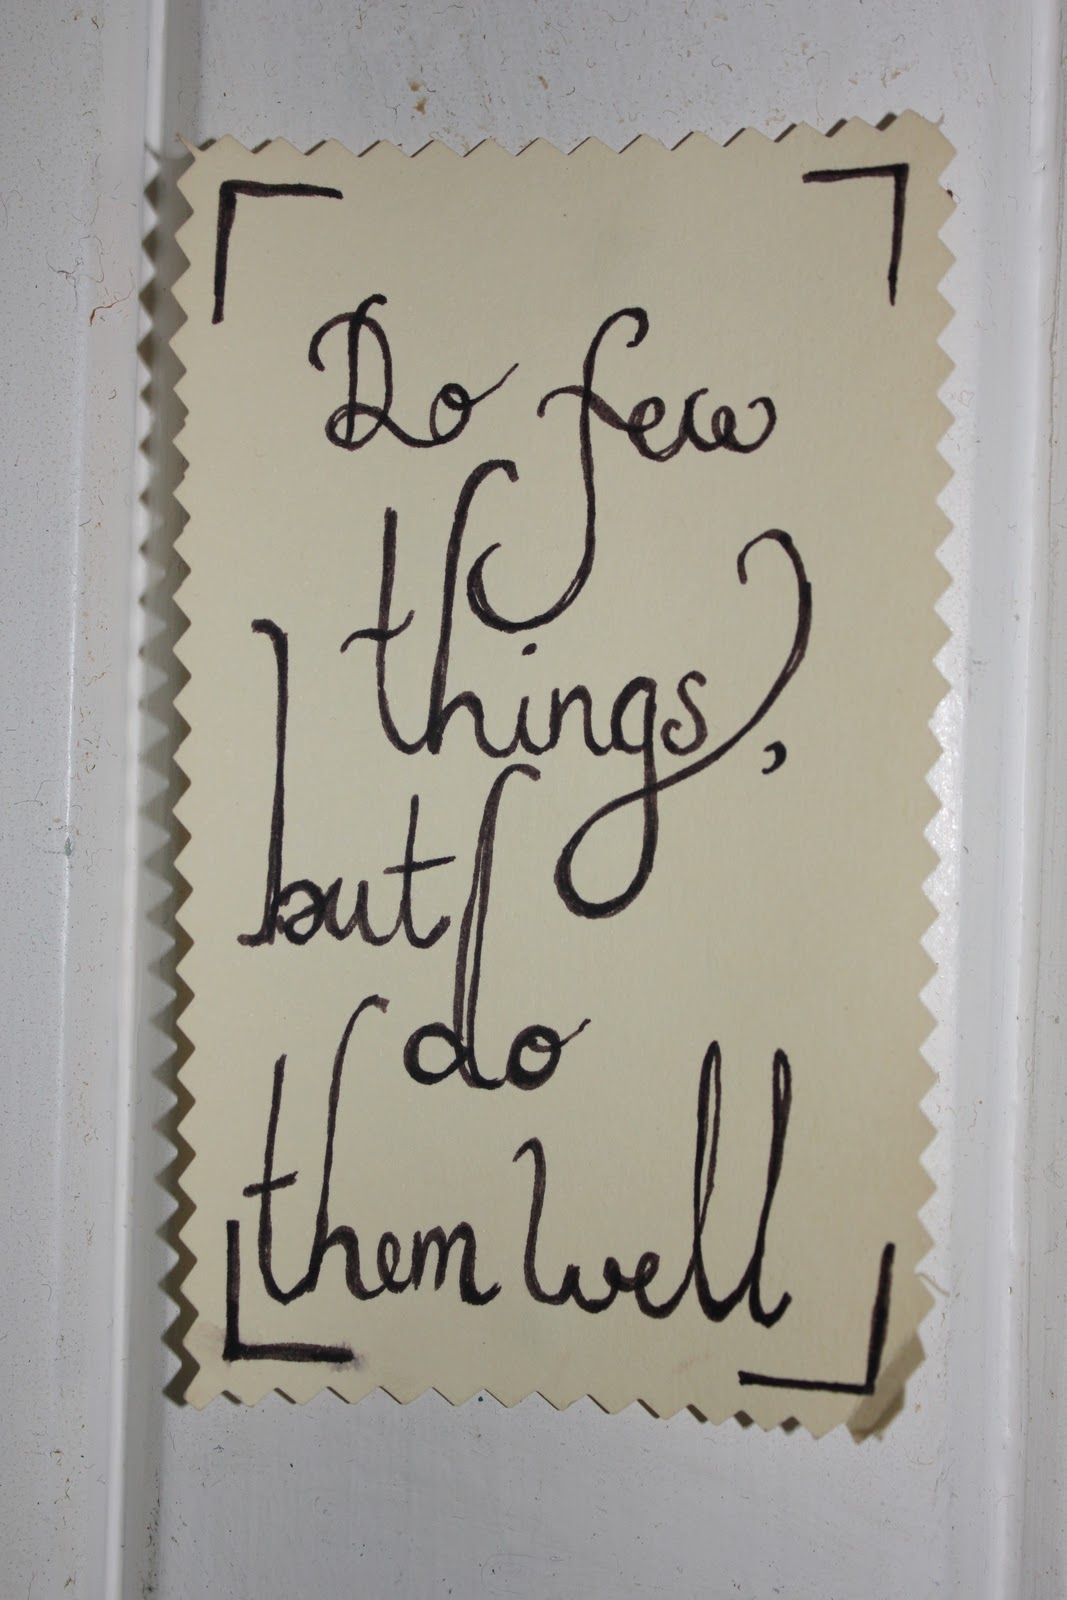 Do few
things,
but
do
them well